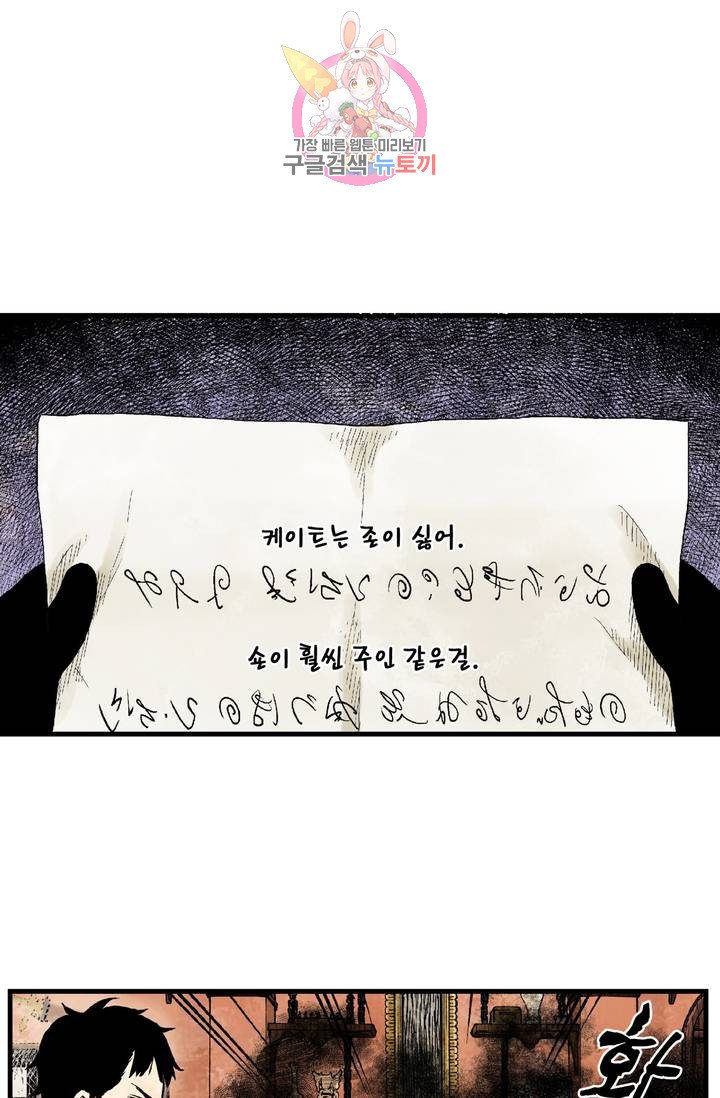 가장 빠른 웹툰 미리보기
구글검색 뉴토끼
케이트는 조이 싫어.
쇼이 훨씬 주인 같은걸.
화